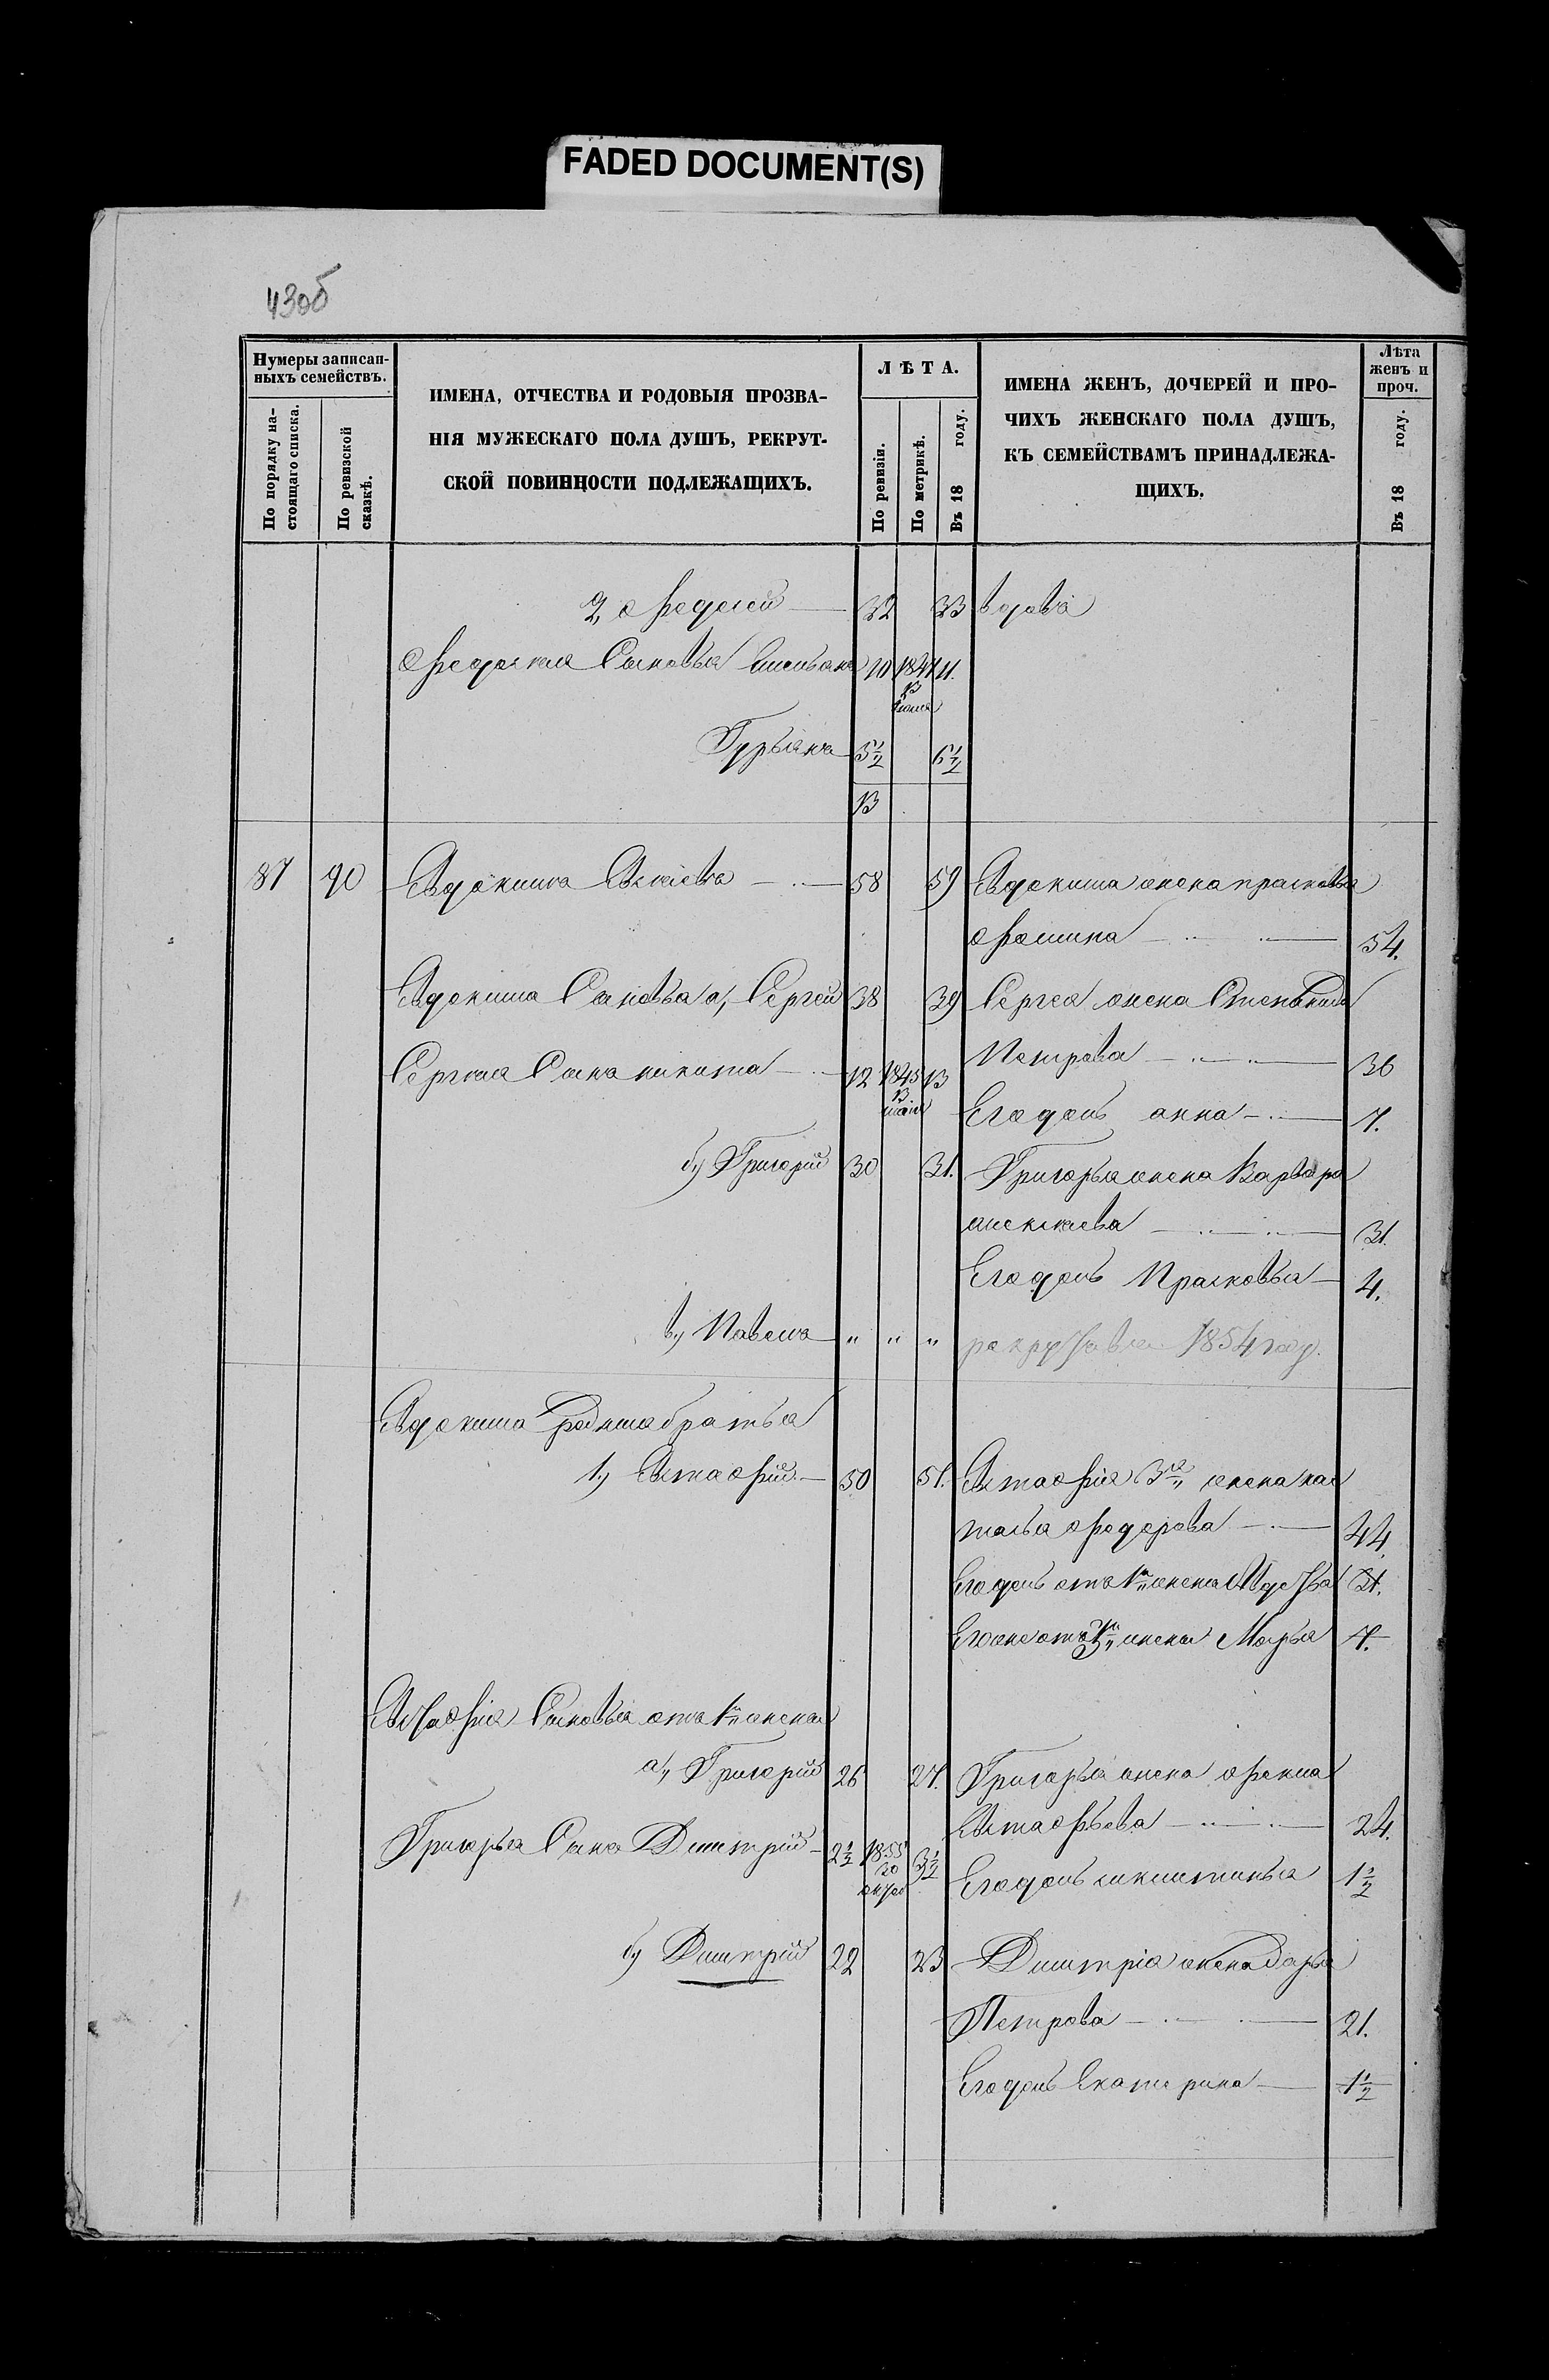 FADED DOCUMENT(S)
430б
Нумеры записан-
ныхъ семействъ.
По порядку на-
стоящаго списка.
По ревизской
сказкѣ.
ИМЕНА, ОТЧЕСТВА И РОДОВЫЯ ПРОЗВА-
НІЯ МУЖЕСКАГО ПОЛА ДУШЪ, РЕКРУТ-
СКОЙ ПОВИННОСТИ ПОДЛЕЖАЩИХЪ.
ЛѢТА.
По ревизіи.
По метрикѣ.
Въ 18 году.
ИМЕНА ЖЕНЪ, ДОЧЕРЕЙ И ПРО-
ЧИХЪ ЖЕНСКАГО ПОЛА ДУШЪ,
КЪ СЕМЕЙСТВАМЪ ПРИНАДЛЕЖА-
ЩИХЪ.
Лѣта
женъ и
проч.
Въ 18 году.
2, Федосей 32 33 вдова
Сыновья 10 1847 11.
13
Гурьянъ 5 1/2 6 1/2
13
87 90 Евдокимъ 58 59 Евдокима жена прасковья
фомина 54.
Евдокима Сыновья а, Сергей 38 39 Сергея жена Степанида
Петрова 36
Сергея Сынъ никита 12 1845 13
13
маія
Его дочь анна 7.
б, Григорій 30 31. Григорья жена Варвара
алексѣева 31.
Его дочь Прасковья 4.
в, Павелъ " " " 1854 году.
Евдокима родныя братья
1, Евстафій 50 51. Евстафія 3я жена на
талья федорова 44.
Его дочь отъ 1й жены 21.
Его же отъ 3й жены Марья 7.
Евстафія Сыновья отъ 1й жены
а, Григорій 26 27. Григорья жена фекла
Евстафьева 24.
Григорья Сынъ Дмитрій 2 1/2 1855 3 1/2
20
Его дочь 1 1/2
б, Дмитрій 22 23 Дмитрія жена дарья
Петрова 21.
Его дочь Екатерина 1 1/2